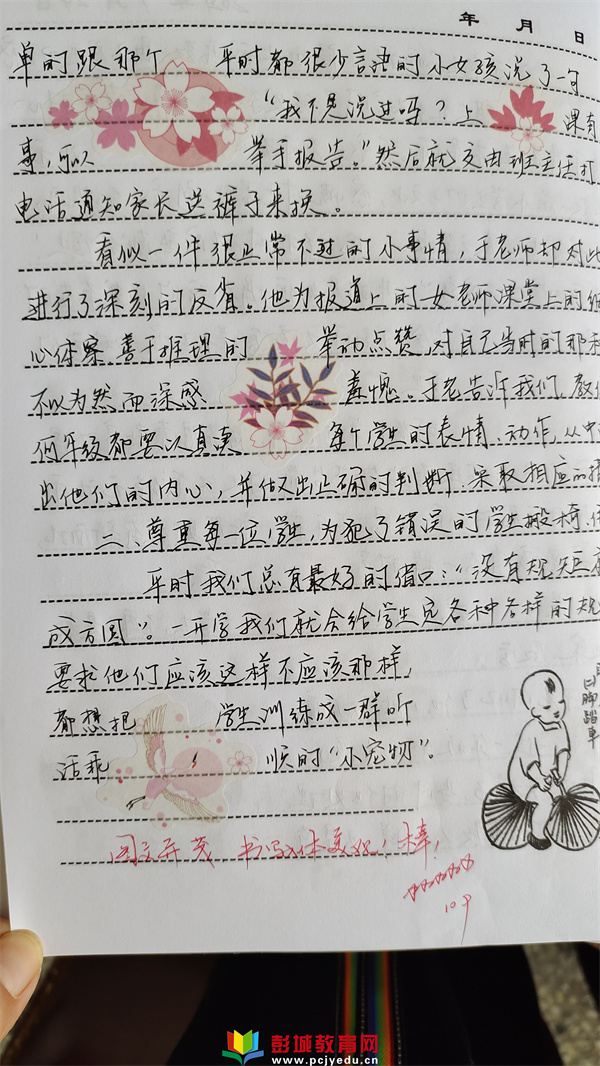 年 月 日
单的跟那个 平时都很少言语的小女孩说了一句
"我不是说过吗?上 课有
事,可以 举手报告。"然后就交由班主任打
电话通知家长送裤子来换。
看似一件很正常不过的小事情,于老师却对此
进行了深刻的反省。他为报道上的女老师课堂上的细
心体察 善于推理的 举动点赞,对自己当时的那种
不以为然而深感 羞愧。于老告诉我们,教
何年级都要以真读 每个学生的表情、动作,从中
出他们的内心,并做出正确的判断、采取相应的措
二、尊重每一位学生,为犯了错误的学生搬椅
平时我们总有最好的借口:"没有规矩
成方圆"。一开学我们就会给学生定各种各样的规
要求他们应该这样不应该那样,
都想把 学生训练成一群听
话乖 顺的"小宠物"。
脚踏车
图文并茂 书写体美观,棒!
10.9
彭城教育网
www.pcjyedu.cn